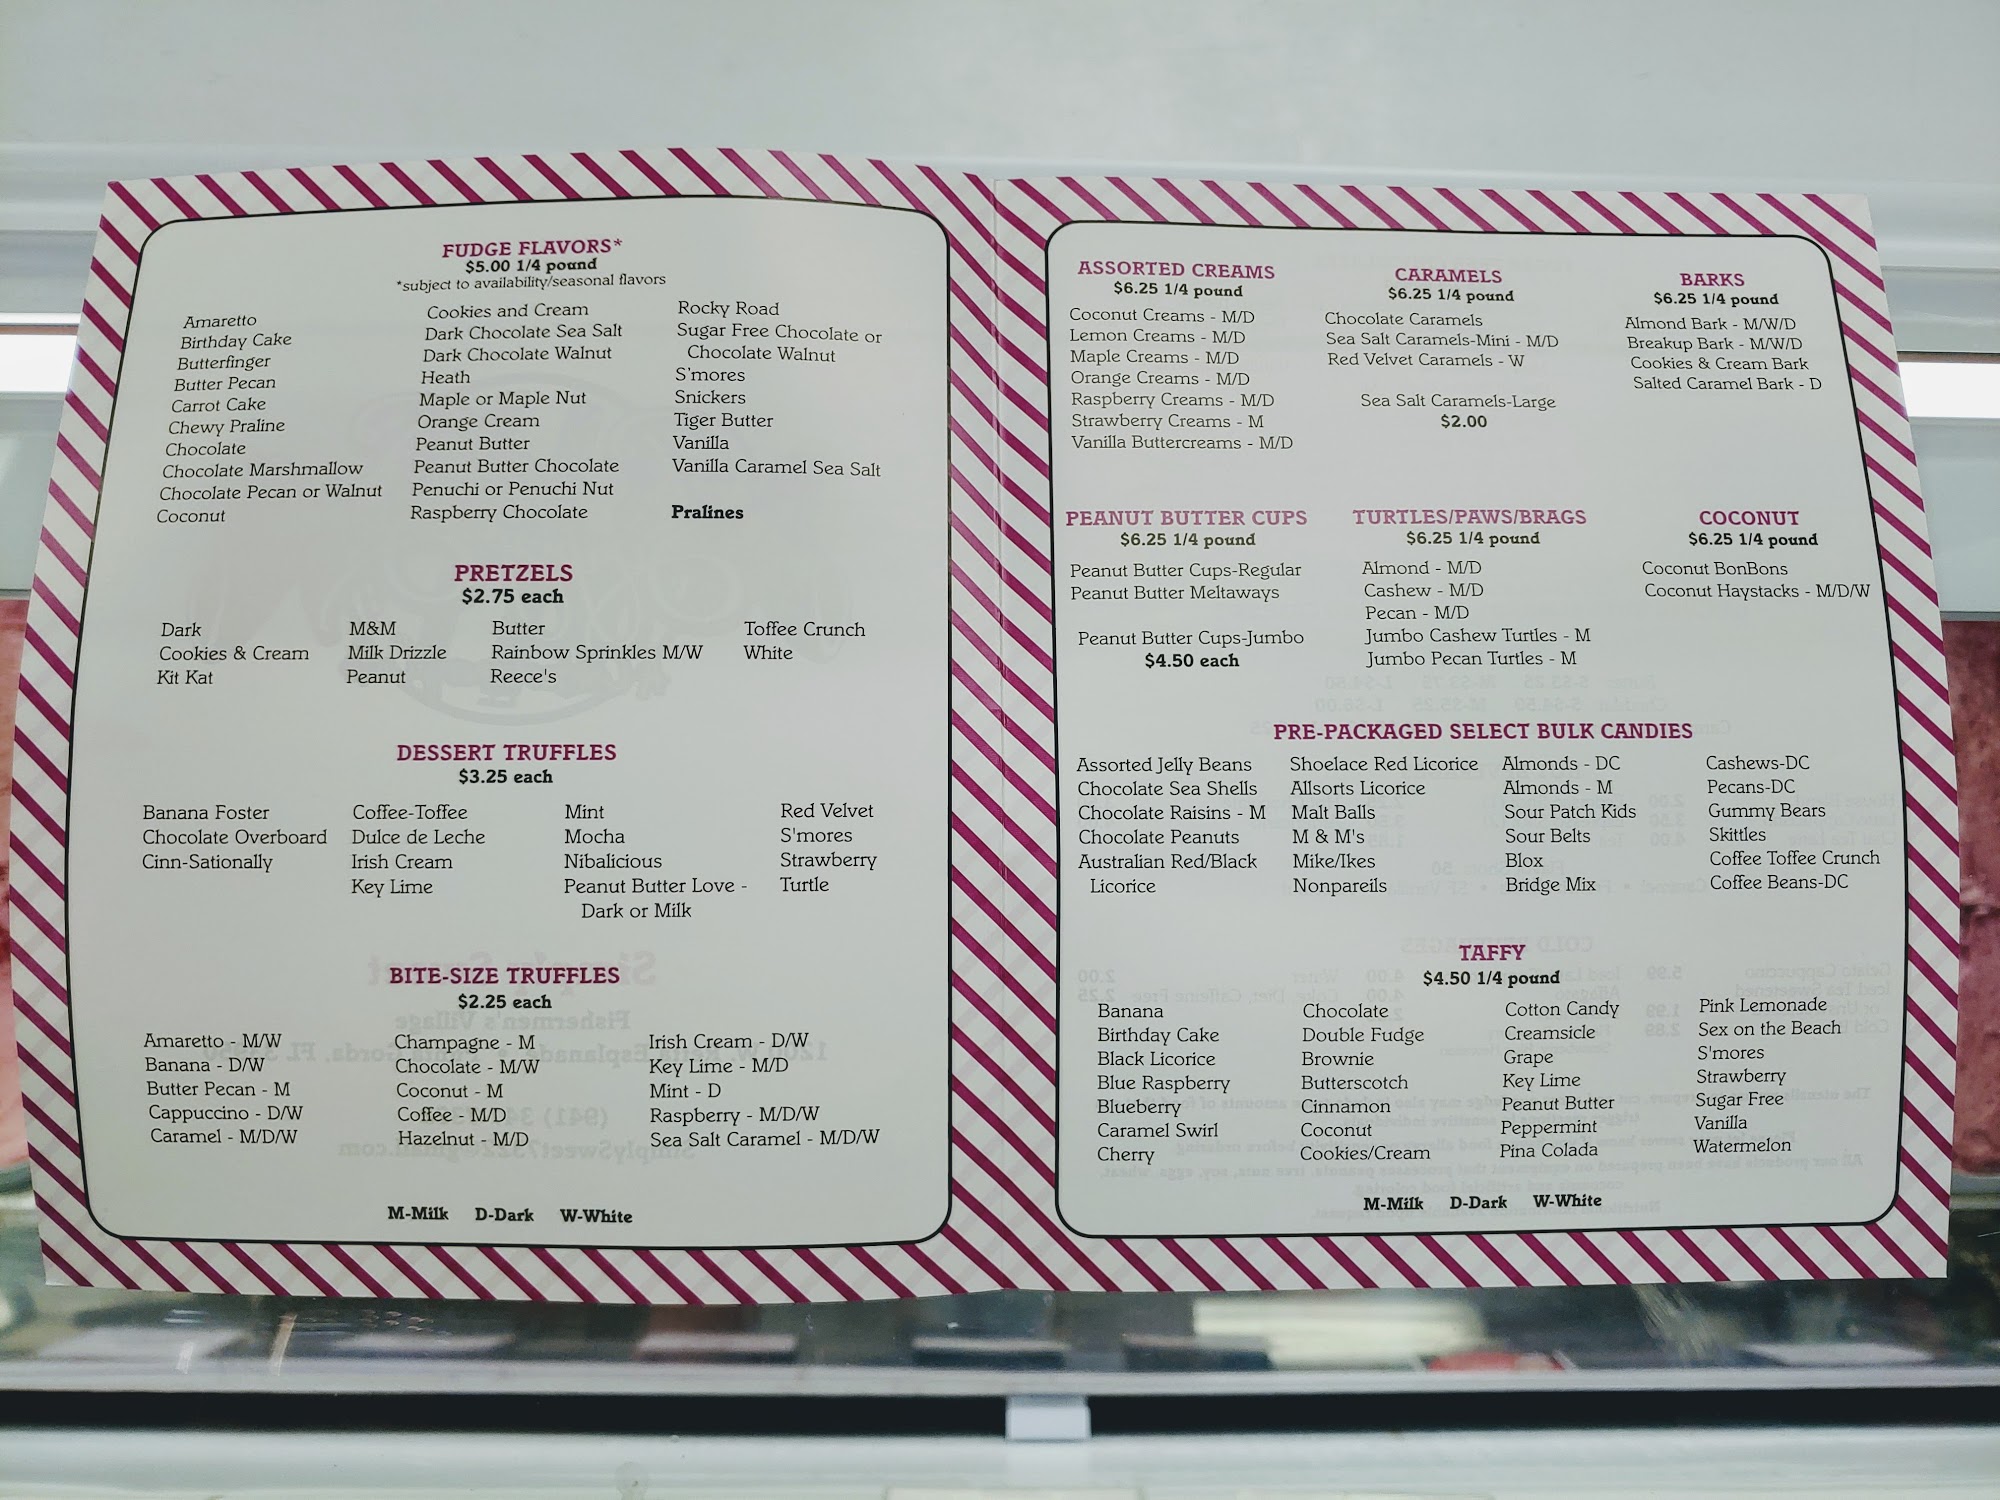 FUDGE FLAVORS*
$5.00 1/4 pound
*subject to availability/seasonal flavors
Amaretto
Birthday Cake
Butterfinger
Butter Pecan
Carrot Cake
Chewy Praline
Chocolate
Chocolate Marshmallow
Chocolate Pecan or Walnut
Coconut
Cookies and Cream
Dark Chocolate Sea Salt
Dark Chocolate Walnut
Heath
Maple or Maple Nut
Orange Cream
Peanut Butter
Peanut Butter Chocolate
Penuchi or Penuchi Nut
Raspberry Chocolate
Rocky Road
Sugar Free Chocolate or
Chocolate Walnut
S'mores
Snickers
Tiger Butter
Vanilla
Vanilla Caramel Sea Salt
Pralines
PRETZELS
$2.75 each
Dark
Cookies & Cream
Kit Kat
M&M
Milk Drizzle
Peanut
Butter
Rainbow Sprinkles M/W
Reece's
Toffee Crunch
White
DESSERT TRUFFLES
$3.25 each
Banana Foster
Chocolate Overboard
Cinn-Sationally
Coffee-Toffee
Dulce de Leche
Irish Cream
Key Lime
Mint
Mocha
Nibalicious
Peanut Butter Love -
Dark or Milk
Red Velvet
S'mores
Strawberry
Turtle
BITE-SIZE TRUFFLES
$2.25 each
Amaretto - M/W
Banana - D/W
Butter Pecan - M
Cappuccino - D/W
Caramel - M/D/W
Champagne - M
Chocolate - M/W
Coconut - M
Coffee - M/D
Hazelnut - M/D
Irish Cream - D/W
Key Lime - M/D
Mint - D
Raspberry - M/D/W
Sea Salt Caramel - M/D/W
M-Milk D-Dark W-White
ASSORTED CREAMS
$6.25 1/4 pound
Coconut Creams - M/D
Lemon Creams - M/D
Maple Creams - M/D
Orange Creams - M/D
Raspberry Creams - M/D
Strawberry Creams - M
Vanilla Buttercreams - M/D
CARAMELS
$6.25 1/4 pound
Chocolate Caramels
Sea Salt Caramels-Mini - M/D
Red Velvet Caramels - W
Sea Salt Caramels-Large
$2.00
BARKS
$6.25 1/4 pound
Almond Bark - M/W/D
Breakup Bark - M/W/D
Cookies & Cream Bark
Salted Caramel Bark - D
PEANUT BUTTER CUPS
$6.25 1/4 pound
Peanut Butter Cups-Regular
Peanut Butter Meltaways
Peanut Butter Cups-Jumbo
$4.50 each
TURTLES/PAWS/BRAGS
$6.25 1/4 pound
Almond - M/D
Cashew - M/D
Pecan - M/D
Jumbo Cashew Turtles - M
Jumbo Pecan Turtles - M
COCONUT
$6.25 1/4 pound
Coconut BonBons
Coconut Haystacks - M/D/W
PRE-PACKAGED SELECT BULK CANDIES
Assorted Jelly Beans
Chocolate Sea Shells
Chocolate Raisins - M
Chocolate Peanuts
Australian Red/Black
Licorice
Shoelace Red Licorice
Allsorts Licorice
Malt Balls
M & M's
Mike/Ikes
Nonpareils
Almonds - DC
Almonds - M
Sour Patch Kids
Sour Belts
Blox
Bridge Mix
Cashews-DC
Pecans-DC
Gummy Bears
Skittles
Coffee Toffee Crunch
Coffee Beans-DC
TAFFY
$4.50 1/4 pound
Banana
Birthday Cake
Black Licorice
Blue Raspberry
Blueberry
Caramel Swirl
Cherry
Chocolate
Double Fudge
Brownie
Butterscotch
Cinnamon
Coconut
Cookies/Cream
Cotton Candy
Creamsicle
Grape
Key Lime
Peanut Butter
Peppermint
Pina Colada
Pink Lemonade
Sex on the Beach
S'mores
Strawberry
Sugar Free
Vanilla
Watermelon
M-Milk D-Dark W-White